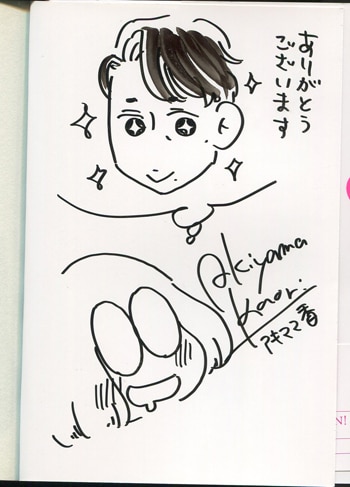 ありがとう
ございます
Akiyama
Kaori.
アキヤマ香
N!